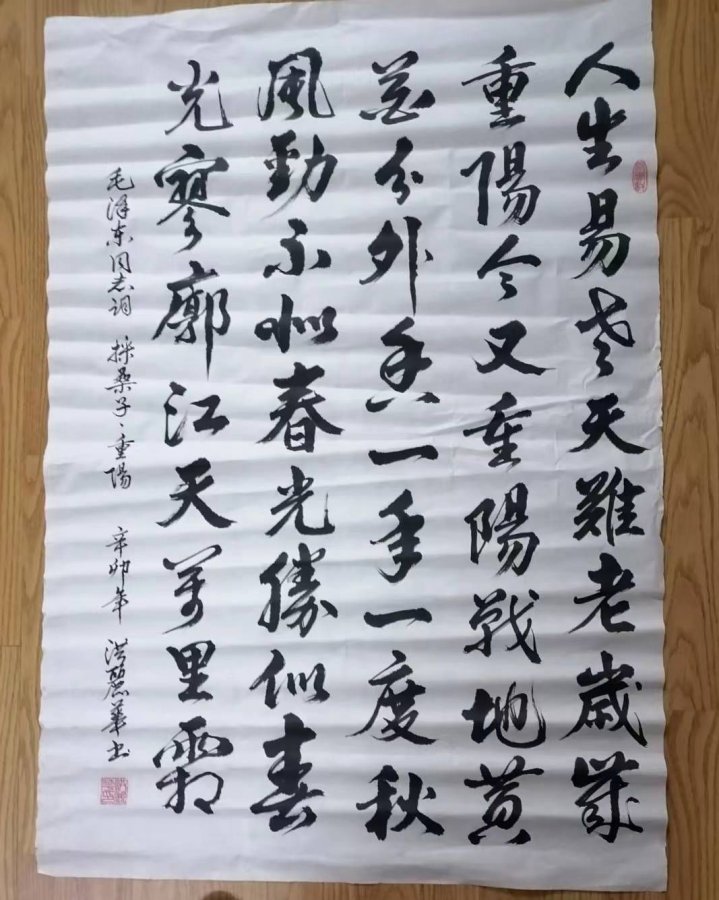 人生易老天難老歲歲
重陽今又重陽戰地黄
花分外香一年一度秋
風勁不似春光勝似春
光寥廓江天萬里霜
毛泽东同志詞 採桑子、重陽 辛卯年 洪麗華书